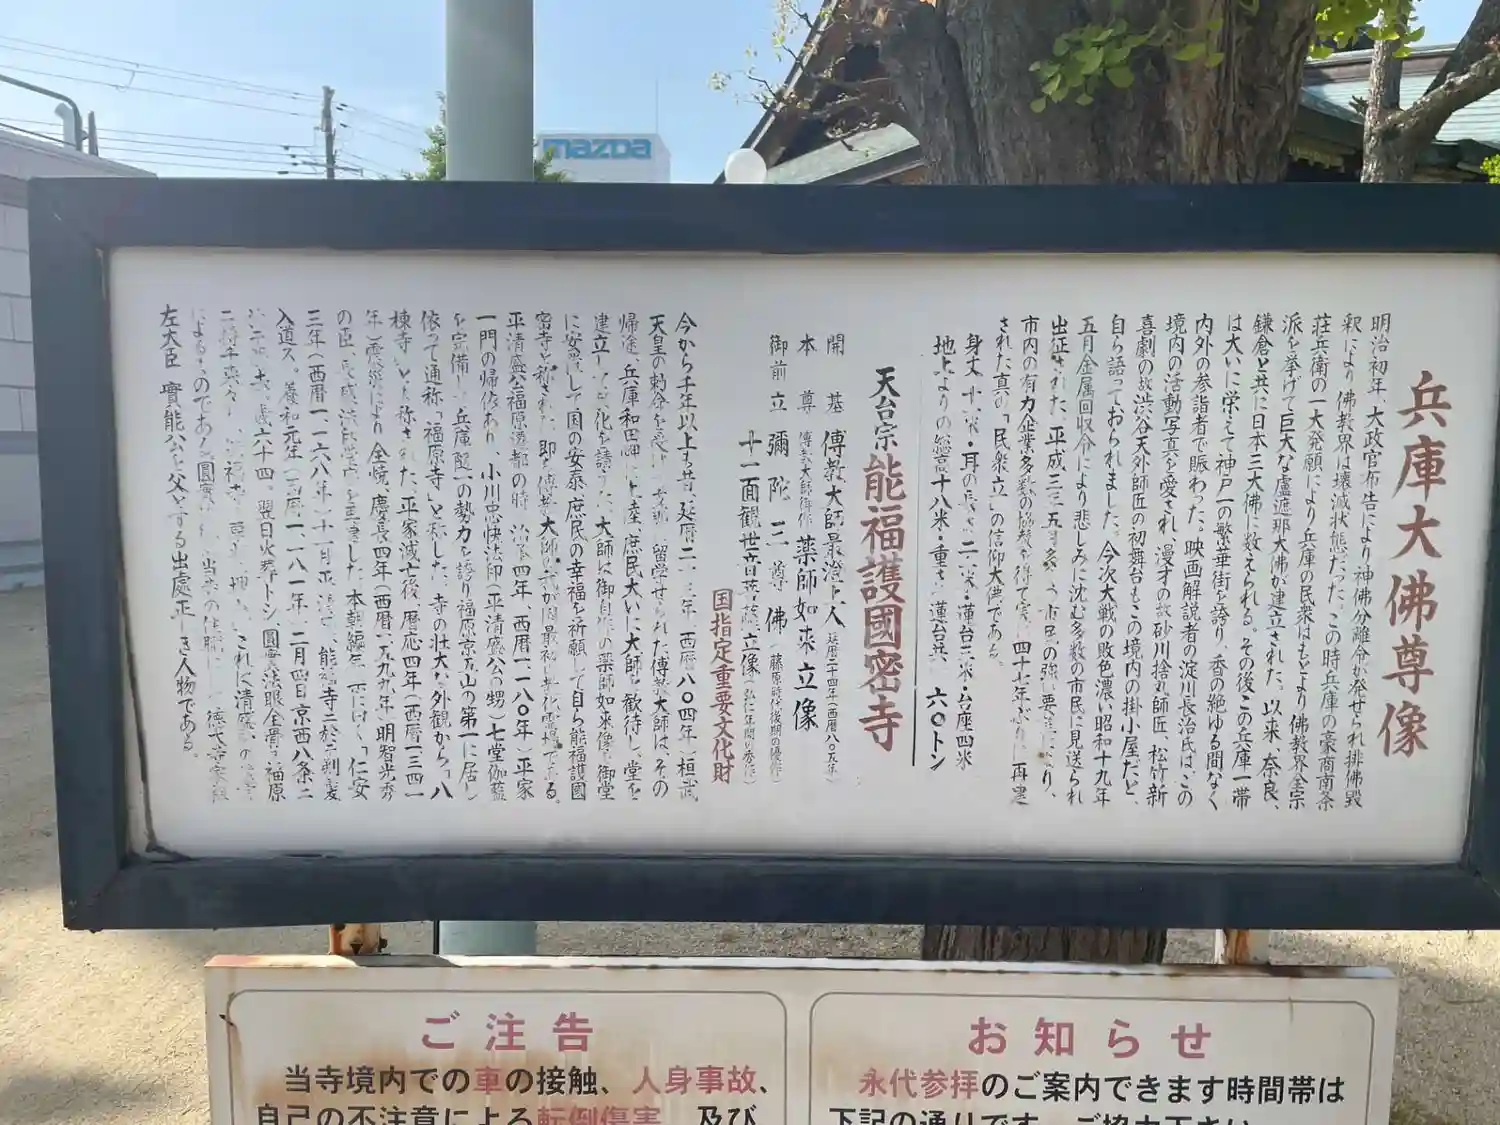 mazda
兵庫大佛尊像
明治初年、大政官布告により神佛分離令が発せられ排佛毀
釈により佛教界は壊滅状態だった。この時兵庫の豪商南条
荘兵衛の一大発願により兵庫の民衆はもとより佛教界全宗
派を挙げて巨大な盧遮那大佛が建立された。以来、奈良、
鎌倉と共に日本三大佛に数えられる。その後この兵庫一帯
は大いに栄えて神戸一の繁華街を誇り、香の絶ゆる間なく
内外の参詣者で賑わった。映画解説者の淀川長治氏は、この
境内の活動写真を愛され、漫才の故砂川捨丸師匠、松竹新
喜劇の故渋谷天外師匠の初舞台もこの境内の掛小屋だと、
自ら語っておられました。今次大戦の敗色濃い昭和十九年
五月金属回収令により悲しみに沈む多数の市民に見送られ
出征された。平成三、五月 市民の強い要望により、
市内の有力企業多数の協賛を得て実に四十七年ぶりに再建
された真の「民衆立」の信仰大佛である。
身丈 十一米・耳の長さ二・米・蓮台三米・台座四米
地上よりの総高十八米・重さ 蓮台共 六〇トン
天台宗 能福護國密寺
開基 傳教大師最澄上人 延暦二十四年(西暦八〇五年)
本尊 傳教大師御作 薬師如来立像
御前立 彌陀三尊佛(藤原時代後期の優作)
十一面観世音菩薩立像(弘仁年間の秀作)
国指定重要文化財
今から千年以上も昔、延暦二十三年(西暦八〇四年)桓武
天皇の勅命を受け 留学せられた傳教大師は、その
帰途、兵庫和田岬に上陸、庶民大いに大師を歓待し、堂を
建立し 教化を請うた、大師は御自作の薬師如来像を御堂
に安置して国の安泰、庶民の幸福を祈願して自ら能福護國
密寺と称された。即ち傳教大師の我が国最初の教化霊場である。
平清盛公福原遷都の時(治承四年、西暦一一八〇年)平家
一門の帰依あり、小川忠快法印(平清盛公の甥)七堂伽藍
を完備し 兵庫随一の勢力を誇り福原京五山の第一に居し
依って通称「福原寺」と称した、寺の壮大な外観から「八
棟寺」とも称された、平家滅亡後、暦応四年(西暦一三四一
年)兵災により全焼、慶長四年(西暦一五九九年)明智光秀
の臣、長盛法印 堂宇を再建した、本朝編年 「仁安
三年(西暦一一六八年)十一月 平清盛、能福寺ニ於テ剃髪
入道ス。養和元年(西暦一一八一年)二月四日京西八条ニ
於テ 。歳六十四。翌日火葬トシ、圓實法眼全骨ヲ福原
ニ持チ来タリ 福
による ものである、圓實 当寺の住職にして徳大寺家
左大臣 實能公を父とする出處正しき人物である。
ご注告
当寺境内での車の接触、人身事故、
自己の不注意による転倒傷害、及び、
お知らせ
永代参拝のご案内できます時間帯は
下記の通りです。ご協力下さい。